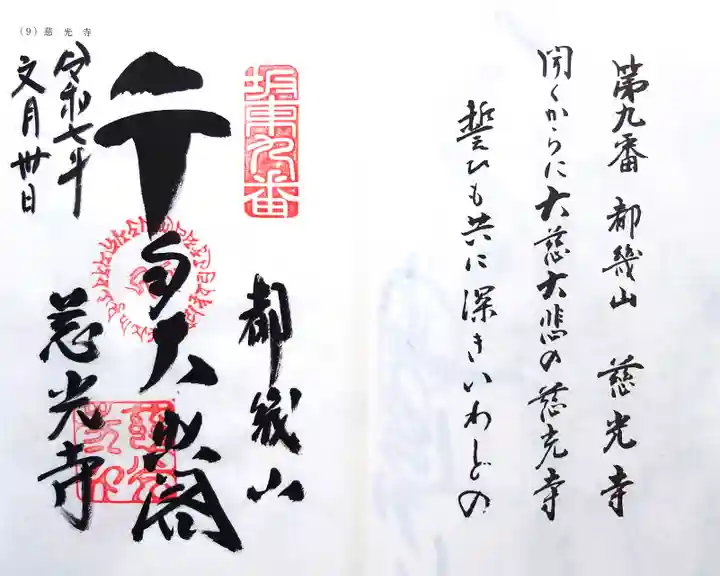 第九番 都幾山 慈光寺
聞くからに大慈大悲の慈光寺
誓ひも共に深きいわどの
(9) 慈光寺
坂東九番
都幾山
千手大
慈光寺
令和七年
文月卅日